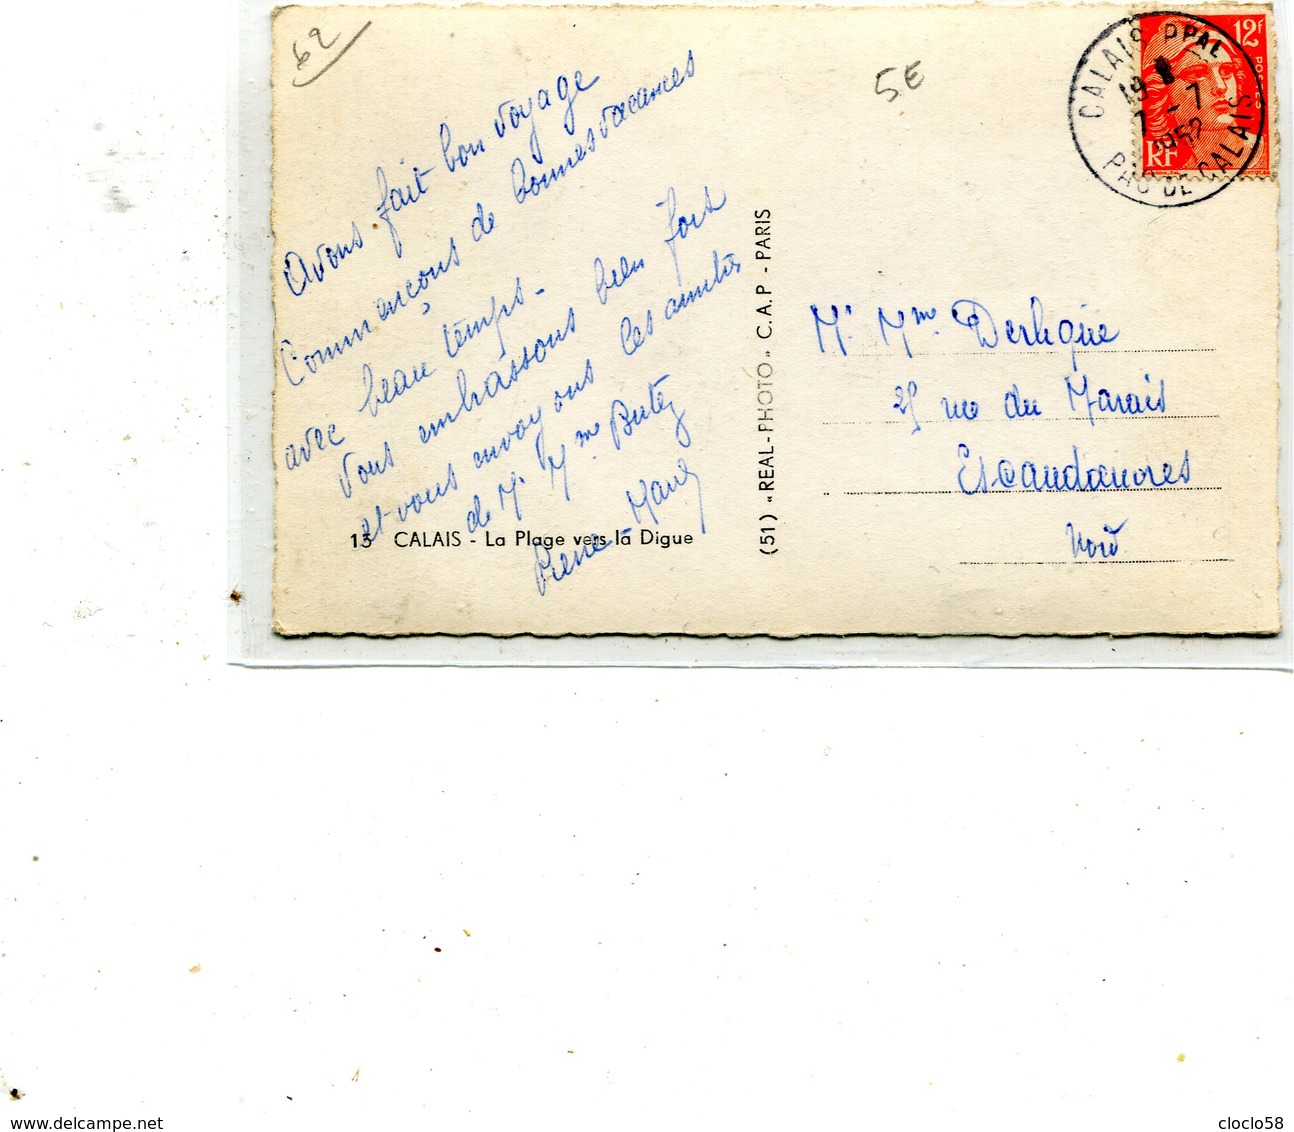 62
5E
Avons fait bon voyage
Commençons de bonnes vacances
avec beau temps -
Vous embrassons bien fort
et vous envoyons les amitiés
de Mr Mme Butez
Pierre - Maud
15 CALAIS - La Plage vers la Digue
(51) « REAL-PHOTO » C.A.P - PARIS
12f
POSTES
RF
CALAIS PPAL
19
7 - 7
1952
PAS DE CALAIS
Mr Mme Derlique
25 rue du Marais
Escaudoeuvres
Nord
www.delcampe.net
cloclo58